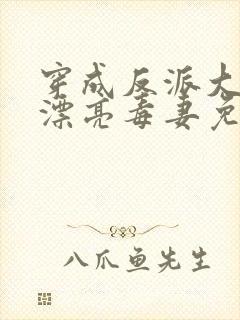 穿成反派大
漂亮毒妻免
八爪鱼先生